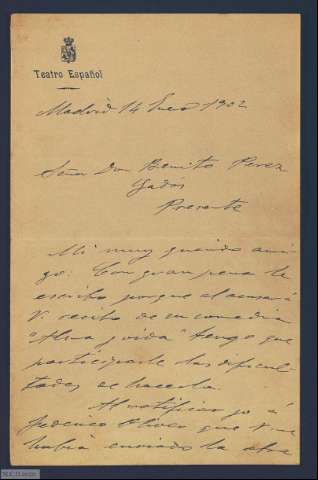 Teatro Español
Madrid 14 Enero 1902
Señor Don Benito Perez
Galdós
Presente
Mi muy querido ami-
go: Con gran pena le
escribo porque al acusar á
V. recibo de su comedia
"Alma y vida" tengo que
participarle las dificul-
tades de hacerla.
Al notificar yo á
Federico Oliver que V. me
había enviado la obra